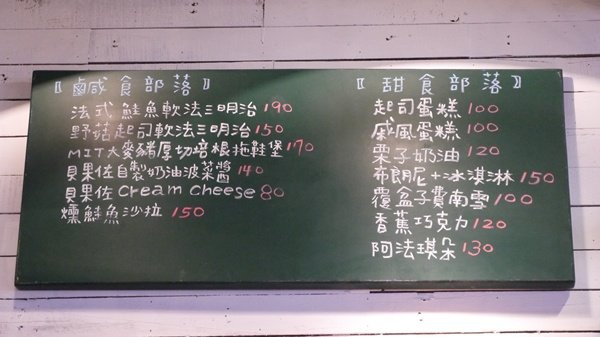 〖鹹食部落〗
法式鮭魚軟法三明治190
野菇起司軟法三明治150
MIT大麥豬厚切培根拖鞋堡170
貝果佐自製奶油波菜醬140
貝果佐cream cheese 80
燻鮭魚沙拉 150
〖甜食部落〗
起司蛋糕100
戚風蛋糕100
栗子奶油120
布朗尼+冰淇淋150
覆盆子費南雪100
香蕉巧克力120
阿法琪朵130